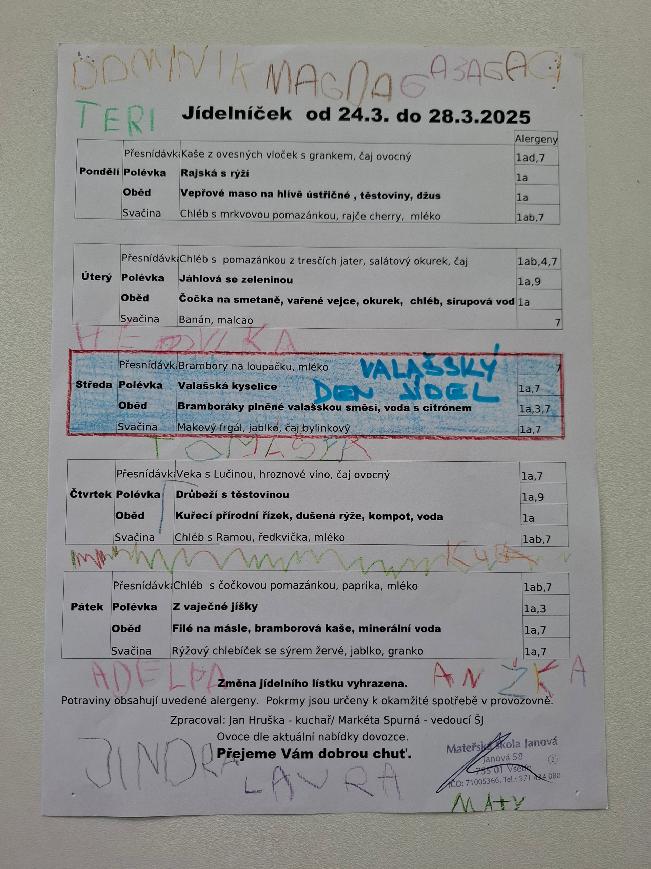 DOMINIK MAGDA
TERI
Jídelníček od 24.3. do 28.3.2025
Alergeny
Přesnídávka Kaše z ovesných vloček s grankem, čaj ovocný 1ad,7
Pondělí Polévka Rajská s rýží 1a
Oběd Vepřové maso na hlívě ústřičné , těstoviny, džus 1a
Svačina Chléb s mrkvovou pomazánkou, rajče cherry, mléko 1ab,7
Přesnídávk Chléb s pomazánkou z tresčích jater, salátový okurek, čaj 1ab,4,7
Úterý Polévka Jáhlová se zeleninou 1a,9
Oběd Čočka na smetaně, vařené vejce, okurek, chléb, sirupová vod 1a
Svačina Banán, malcao 7
HEDVIKA
Přesnídávk Brambory na loupačku, mléko 7
VALAŠSKÝ
Středa Polévka Valašská kyselice 1a,7
DEN JÍDEL
Oběd Bramboráky plněné valašskou směsí, voda s citrónem 1a,3,7
Svačina Makový frgál, jablko, čaj bylinkový 1a,7
Přesnídávk Veka s Lučinou, hroznové víno, čaj ovocný 1a,7
Čtvrtek Polévka Drůbeží s těstovinou 1a,9
Oběd Kuřecí přírodní řízek, dušená rýže, kompot, voda 1a
Svačina Chléb s Ramou, ředkvička, mléko 1ab,7
KUBA
Přesnídávk Chléb s čočkovou pomazánkou, paprika, mléko 1ab,7
Pátek Polévka Z vaječné jíšky 1a,3
Oběd Filé na másle, bramborová kaše, minerální voda 1a,7
Svačina Rýžový chlebíček se sýrem žervé, jablko, granko 1a,7
ADELKA ANŽKA
Změna jídelního lístku vyhrazena.
Potraviny obsahují uvedené alergeny. Pokrmy jsou určeny k okamžité spotřebě v provozovně.
Zpracoval: Jan Hruška - kuchař/ Markéta Spurná - vedoucí ŠJ
Ovoce dle aktuální nabídky dovozce.
Přejeme Vám dobrou chuť.
JINDRA
LAURA
Mateřská škola Janová
Janová 58
755 01 Vsetín
IČO: 71005366, Tel.: 571
MATY